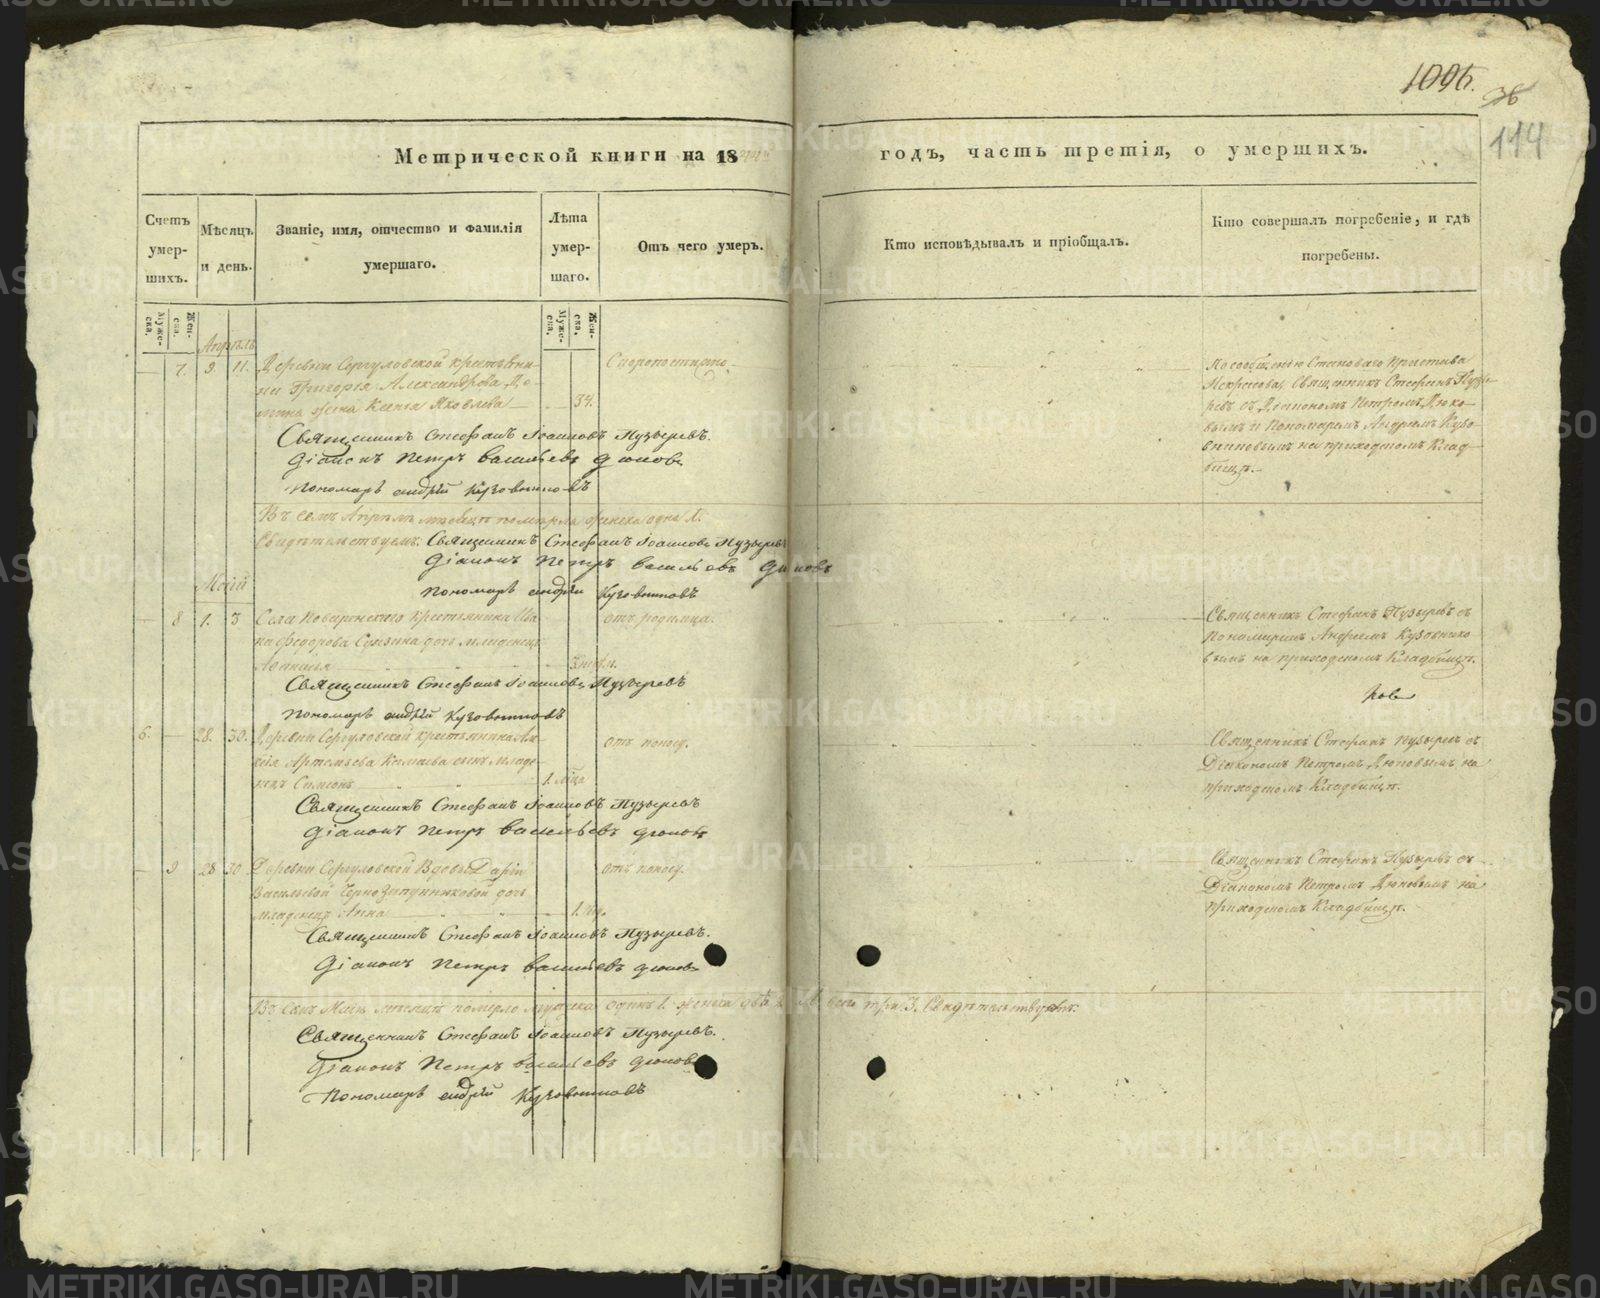 1096.
36
114
Метрической книги на 18
годъ, часть третія, о умершихъ.
Счетъ умер-шихъ.
Мѣсяцъ и день.
Званіе, имя, отчество и фамилія умершаго.
Лѣта умер-шаго.
Отъ чего умеръ.
Кто исповѣдывалъ и пріобщалъ.
Кто совершалъ погребеніе, и гдѣ погребены.
Муже-ска.
Жен-ска.
Муже-ска.
Жен-ска.
Апрѣль
7. 9. 11. Деревни Сергуловской крестьяни-
на Григорія Александрова
жена Ксенія Яковлева 34.
Скоропостижно
По сообщенію Становаго Пристава
Некрасова, Священникъ Стефанъ Пузы-
ревъ съ Діакономъ Петромъ Дюко-
вымъ и Пономаремъ Андреемъ Кузо-
вниковымъ на приходскомъ Клад-
бищѣ.
Священникъ Стефанъ Іоанновъ Пузыревъ.
Діаконъ Петръ Васильевъ Дюковъ
Пономарь Андрей Кузовниковъ
Въ семъ Апрѣлѣ мѣсяцѣ померла женска одна 1.
Свидѣтельствуемъ: Священникъ Стефанъ Іоанновъ Пузыревъ
Діаконъ Петръ Васильевъ Дюковъ
Пономарь Андрей Кузовниковъ
Маій
8 1. 3 Села крестьянина Ива-
на Федорова дочь младенецъ
отъ родимца.
Священникъ Стефанъ Пузыревъ съ
Пономаремъ Андреемъ Кузовнико-
вымъ на приходскомъ Кладбищѣ.
Священникъ Стефанъ Іоанновъ Пузыревъ
Пономарь Андрей Кузовниковъ
6. 28. 30. Деревни Сергуловской крестьянина
Артемьева сынъ младе-
нецъ Симеонъ 1.
отъ поносу.
Священникъ Стефанъ Пузыревъ съ
Діакономъ Петромъ Дюковымъ на
приходскомъ Кладбищѣ.
Священникъ Стефанъ Іоанновъ Пузыревъ
Діаконъ Петръ Васильевъ Дюковъ
9 28 30 Деревни Сергуловской Вдовы Даріи
Васильевой Чернозипунниковой дочь
младенецъ Анна 1.
отъ поносу.
Священникъ Стефанъ Пузыревъ съ
Діакономъ Петромъ Дюковымъ на
приходскомъ Кладбищѣ.
Священникъ Стефанъ Іоанновъ Пузыревъ.
Діаконъ Петръ Васильевъ Дюковъ
Въ семъ Маіѣ мѣсяцѣ померло мужеска одинъ 1. женска двѣ 2. А всего три 3. Свидѣтельствуемъ:
Священникъ Стефанъ Іоанновъ Пузыревъ.
Діаконъ Петръ Васильевъ Дюковъ
Пономарь Андрей Кузовниковъ
METRIKI.GASO-URAL.RU